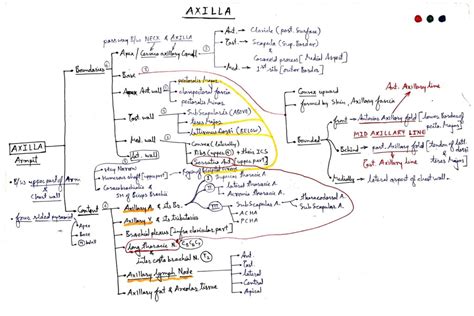 AXILLA
passway b/w NECK & AXILLA
Ant. → Clavicle (post. Surface)
Post. → Scapula (Sup. Border)
&
Coracoid process [Medial Aspect]
Med. → 1st rib [outer Border]
Apex / Cervico axillary Canal
Boundaries
Base
Ant wall
pectoralis major
clavipectoral fascia
pectoralis minor
Post wall
Subscapularis (ABOVE)
teres major
latissimus dorsi (BELOW)
Med. wall
Convex (laterally)
Ribs (upper 4) + their ICS
Serratus Ant (upper part)
Lat. wall
very Narrow
Humerus shaft [upper part]
Coracobrachialis
SH of Biceps Brachii
Convex upward
formed by Skin, Axillary fascia
Bounded
Ant. Axillary line
front → Anterior Axillary fold [lower Border of pecto. Major]
MID AXILLARY LINE
Behind → post. Axillary fold [Tendon of latt. dorsi
teres major]
Post Axillary line
Medially → lateral aspect of chest wall.
AXILLA
Armpit
b/w upper part of Arm
& chest wall
four sided pyramid
Apex
Base
4 Wall
Content
Axillary A. & its Br.
I Superior thoracic A.
II
lateral thoracic A.
Acromio thoracic A.
III
Subscapular A.
ACHA
PCHA
thoracodorsal A.
Sub Scapular A.
Axillary V. & its tributaries
Brachial plexus [infra clavicular part]
long thoracic N. C5 C6 C7
inter costo brachial N. T2
Axillary lymph Node
Ant.
Post.
lateral
Central
Apical
Axillary fat & Areolar tissue